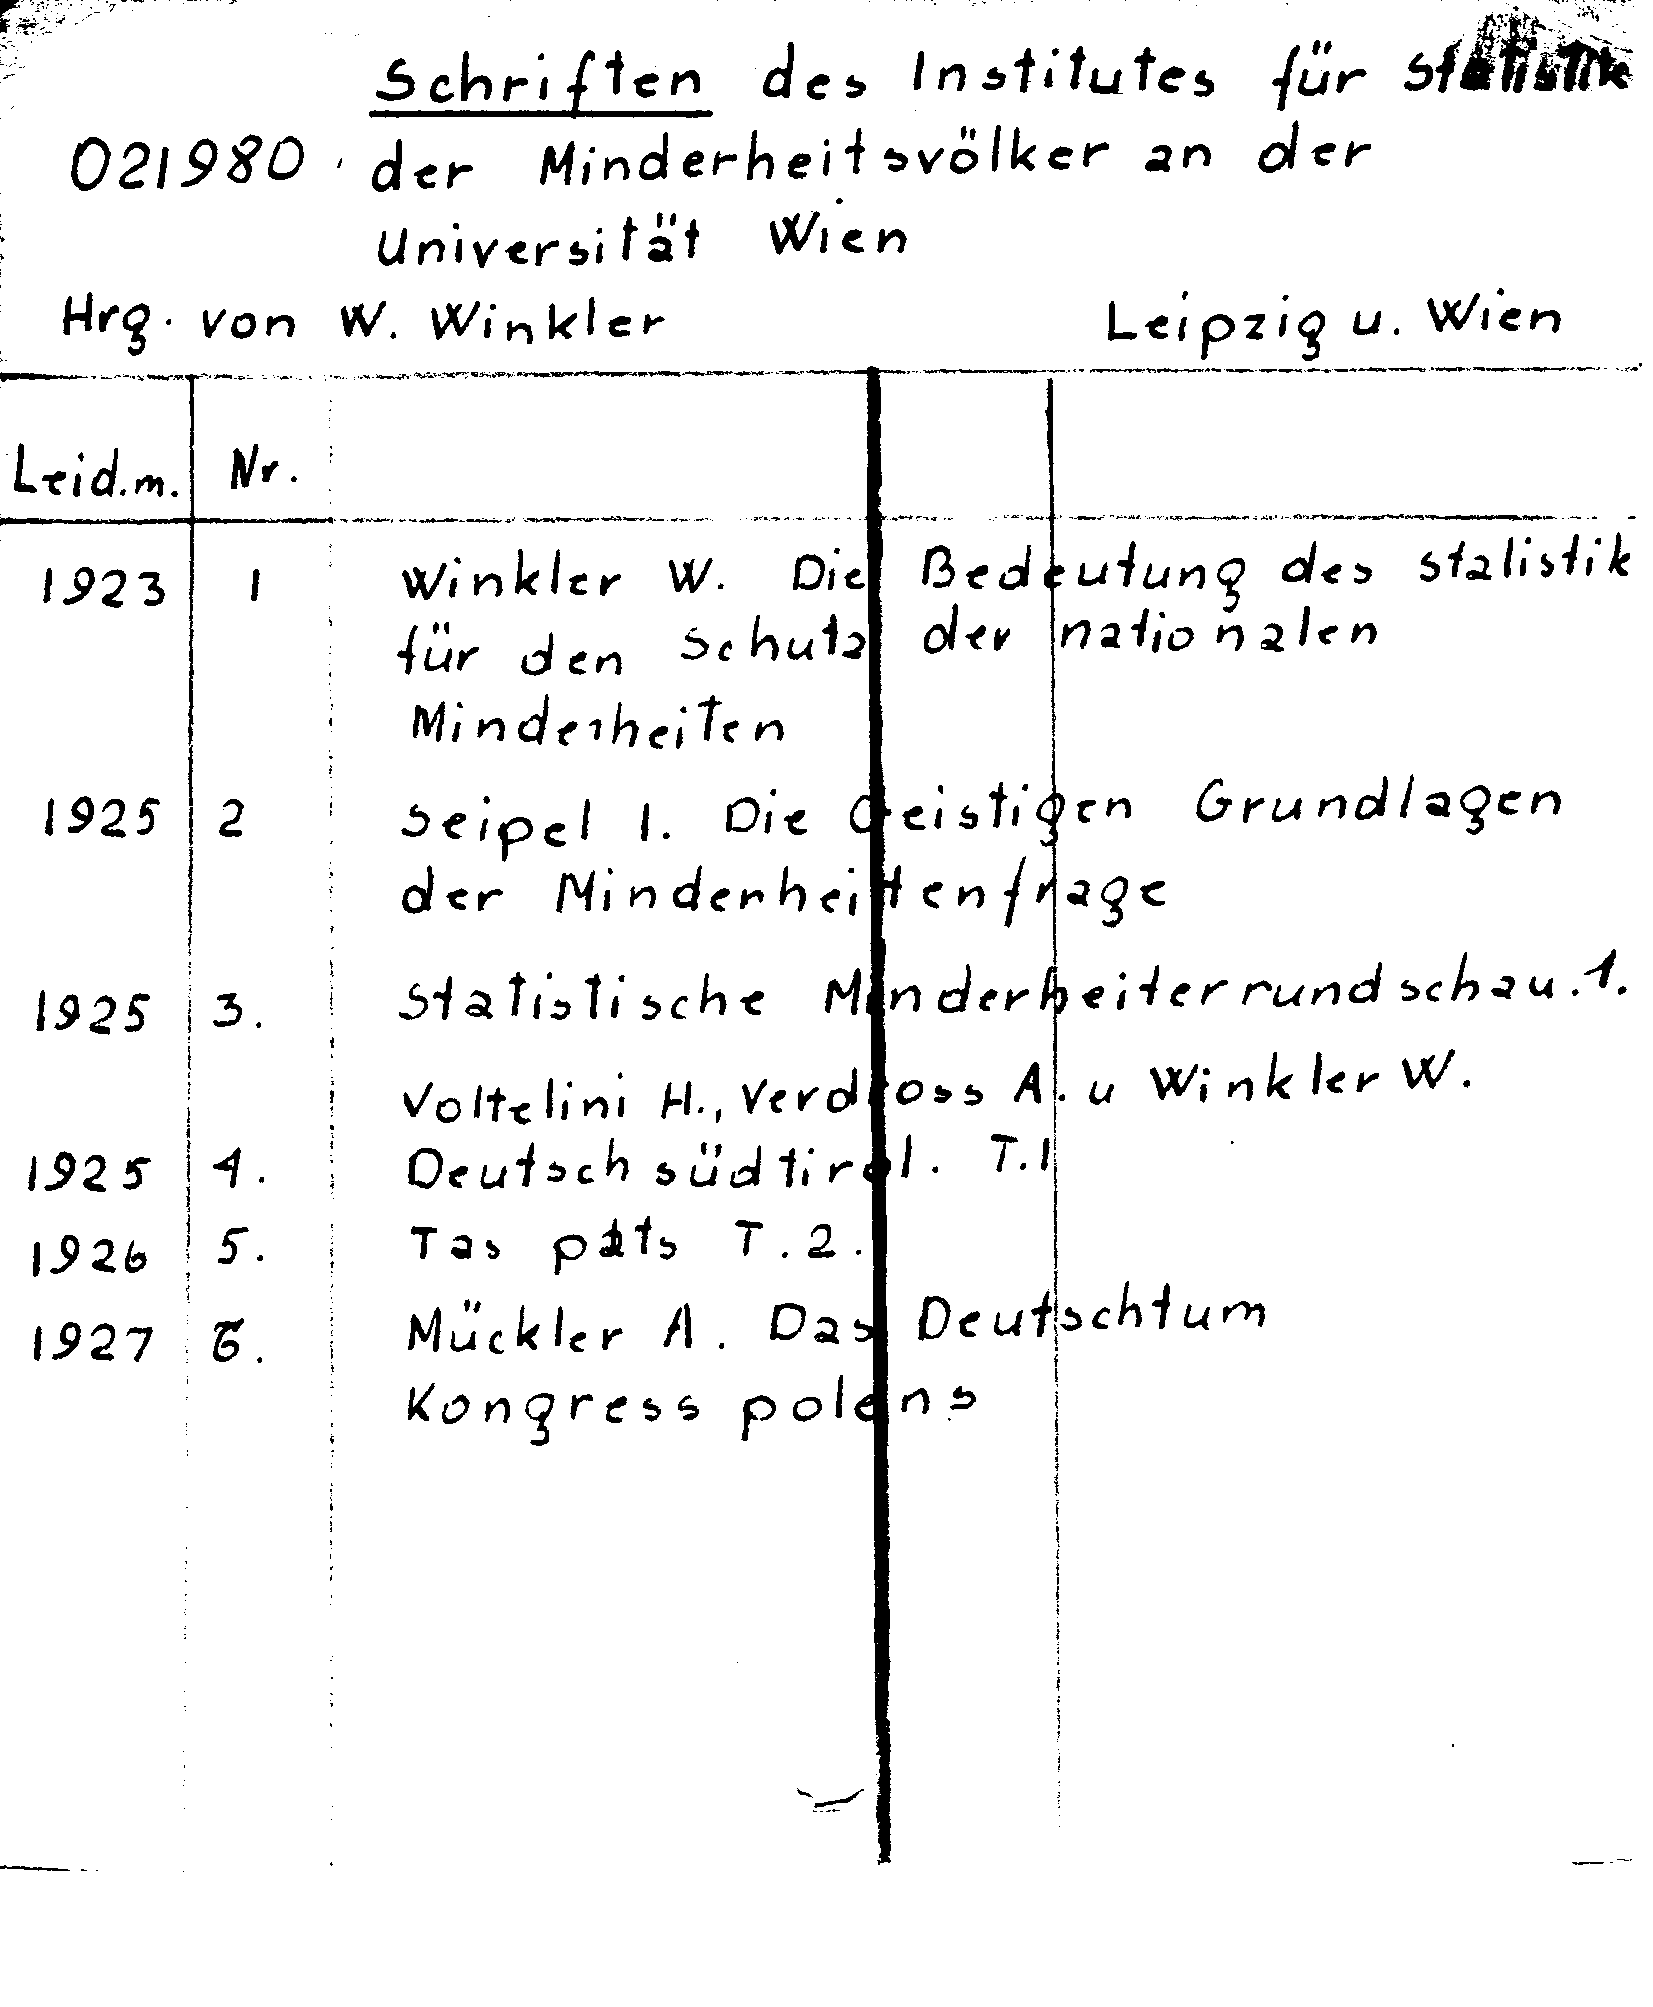 Schriften des Institutes für Statistik
021980 der Minderheitsvölker an der
Universität Wien
Hrg. von W. Winkler Leipzig u. Wien
Leid.m. Nr.
1923 1 Winkler W. Die Bedeutung des Stalistik
für den Schutz der nationalen
Minderheiten
1925 2 Seipel I. Die Geistigen Grundlagen
der Minderheittenfrage
1925 3. Statistische Minderheiterrundschau.1.
Voltelini H., Verdross A. u Winkler W.
1925 4. Deutschsüdtirol. T.1
1926 5. Tas pats T.2.
1927 6. Mückler A. Das Deutschtum
Kongress polens